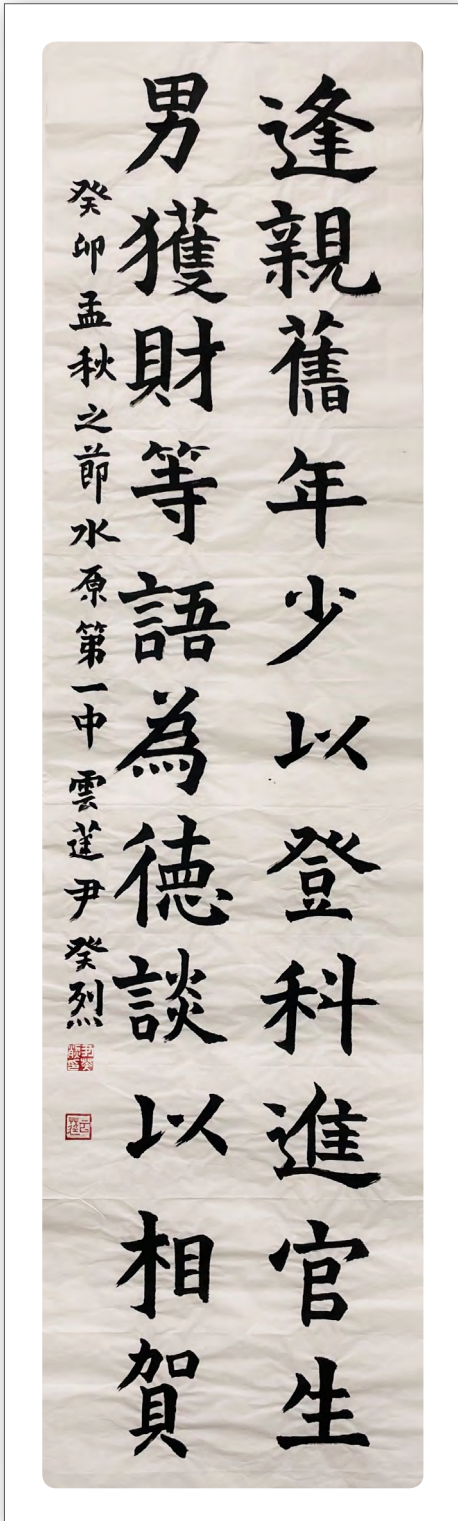 逢親舊年少以登科進官生
男獲財等語為徳談以相賀
癸卯孟秋之節水原第一中 雲蓮尹癸烈